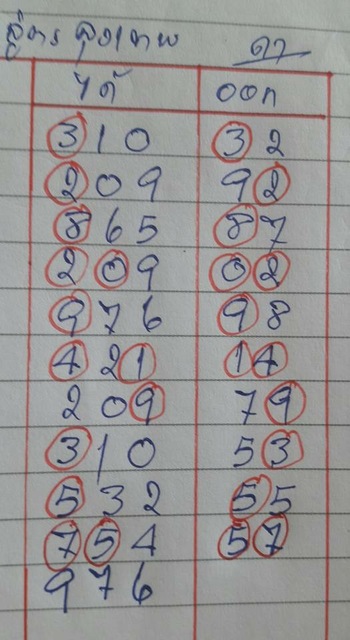 สูตร กุงเทพ ดา
ได้ ออก
310 32
209 92
865 87
209 02
976 98
421 14
209 79
310 53
532 55
754 57
976